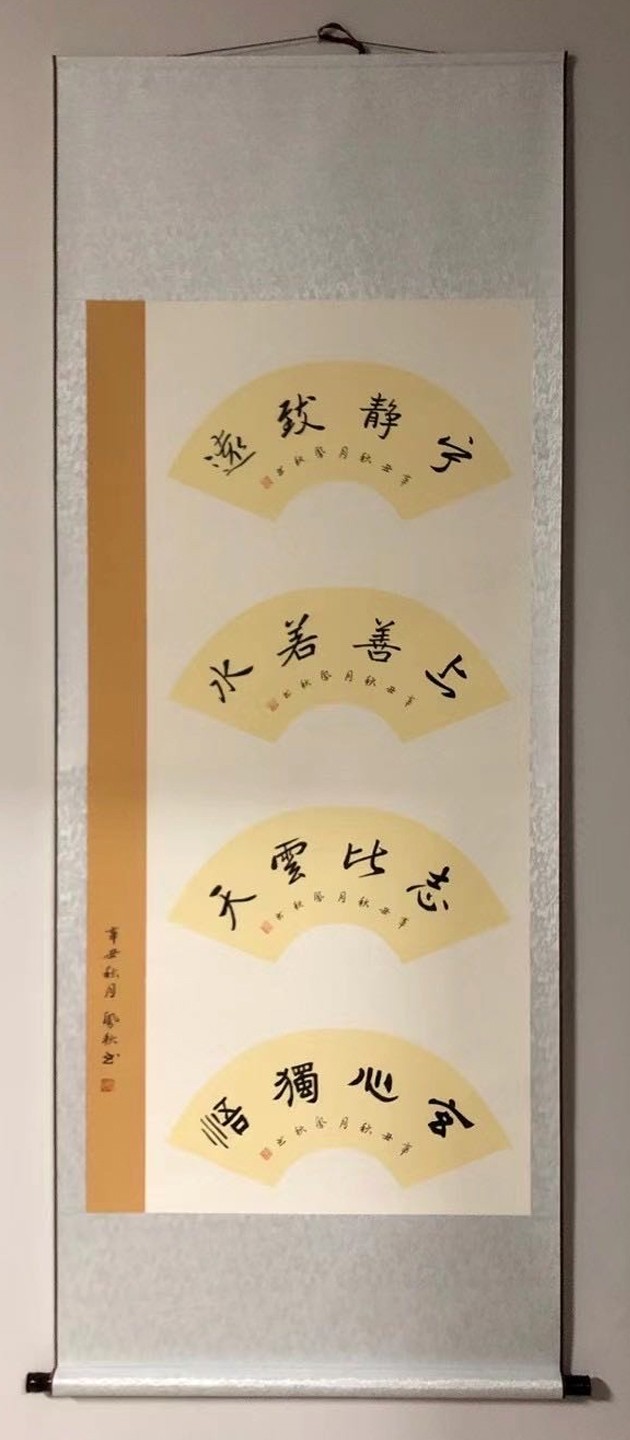 宁静致遠
辛丑秋月鳳秋书
上善若水
辛丑秋月鳳秋书
志比雲天
辛丑秋月鳳秋书
玄心獨悟
辛丑秋月鳳秋书
辛丑秋月 鳳秋书